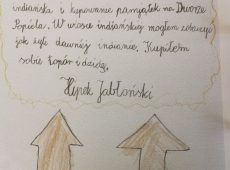 indiańska i kupowanie pamiątek na Dworze
Popiela. W wiosce indiańskiej mogłem zobaczyć
jak żyli dawniej indianie. Kupiłem
sobie topór i dzidę.
Hipek Jabłoński